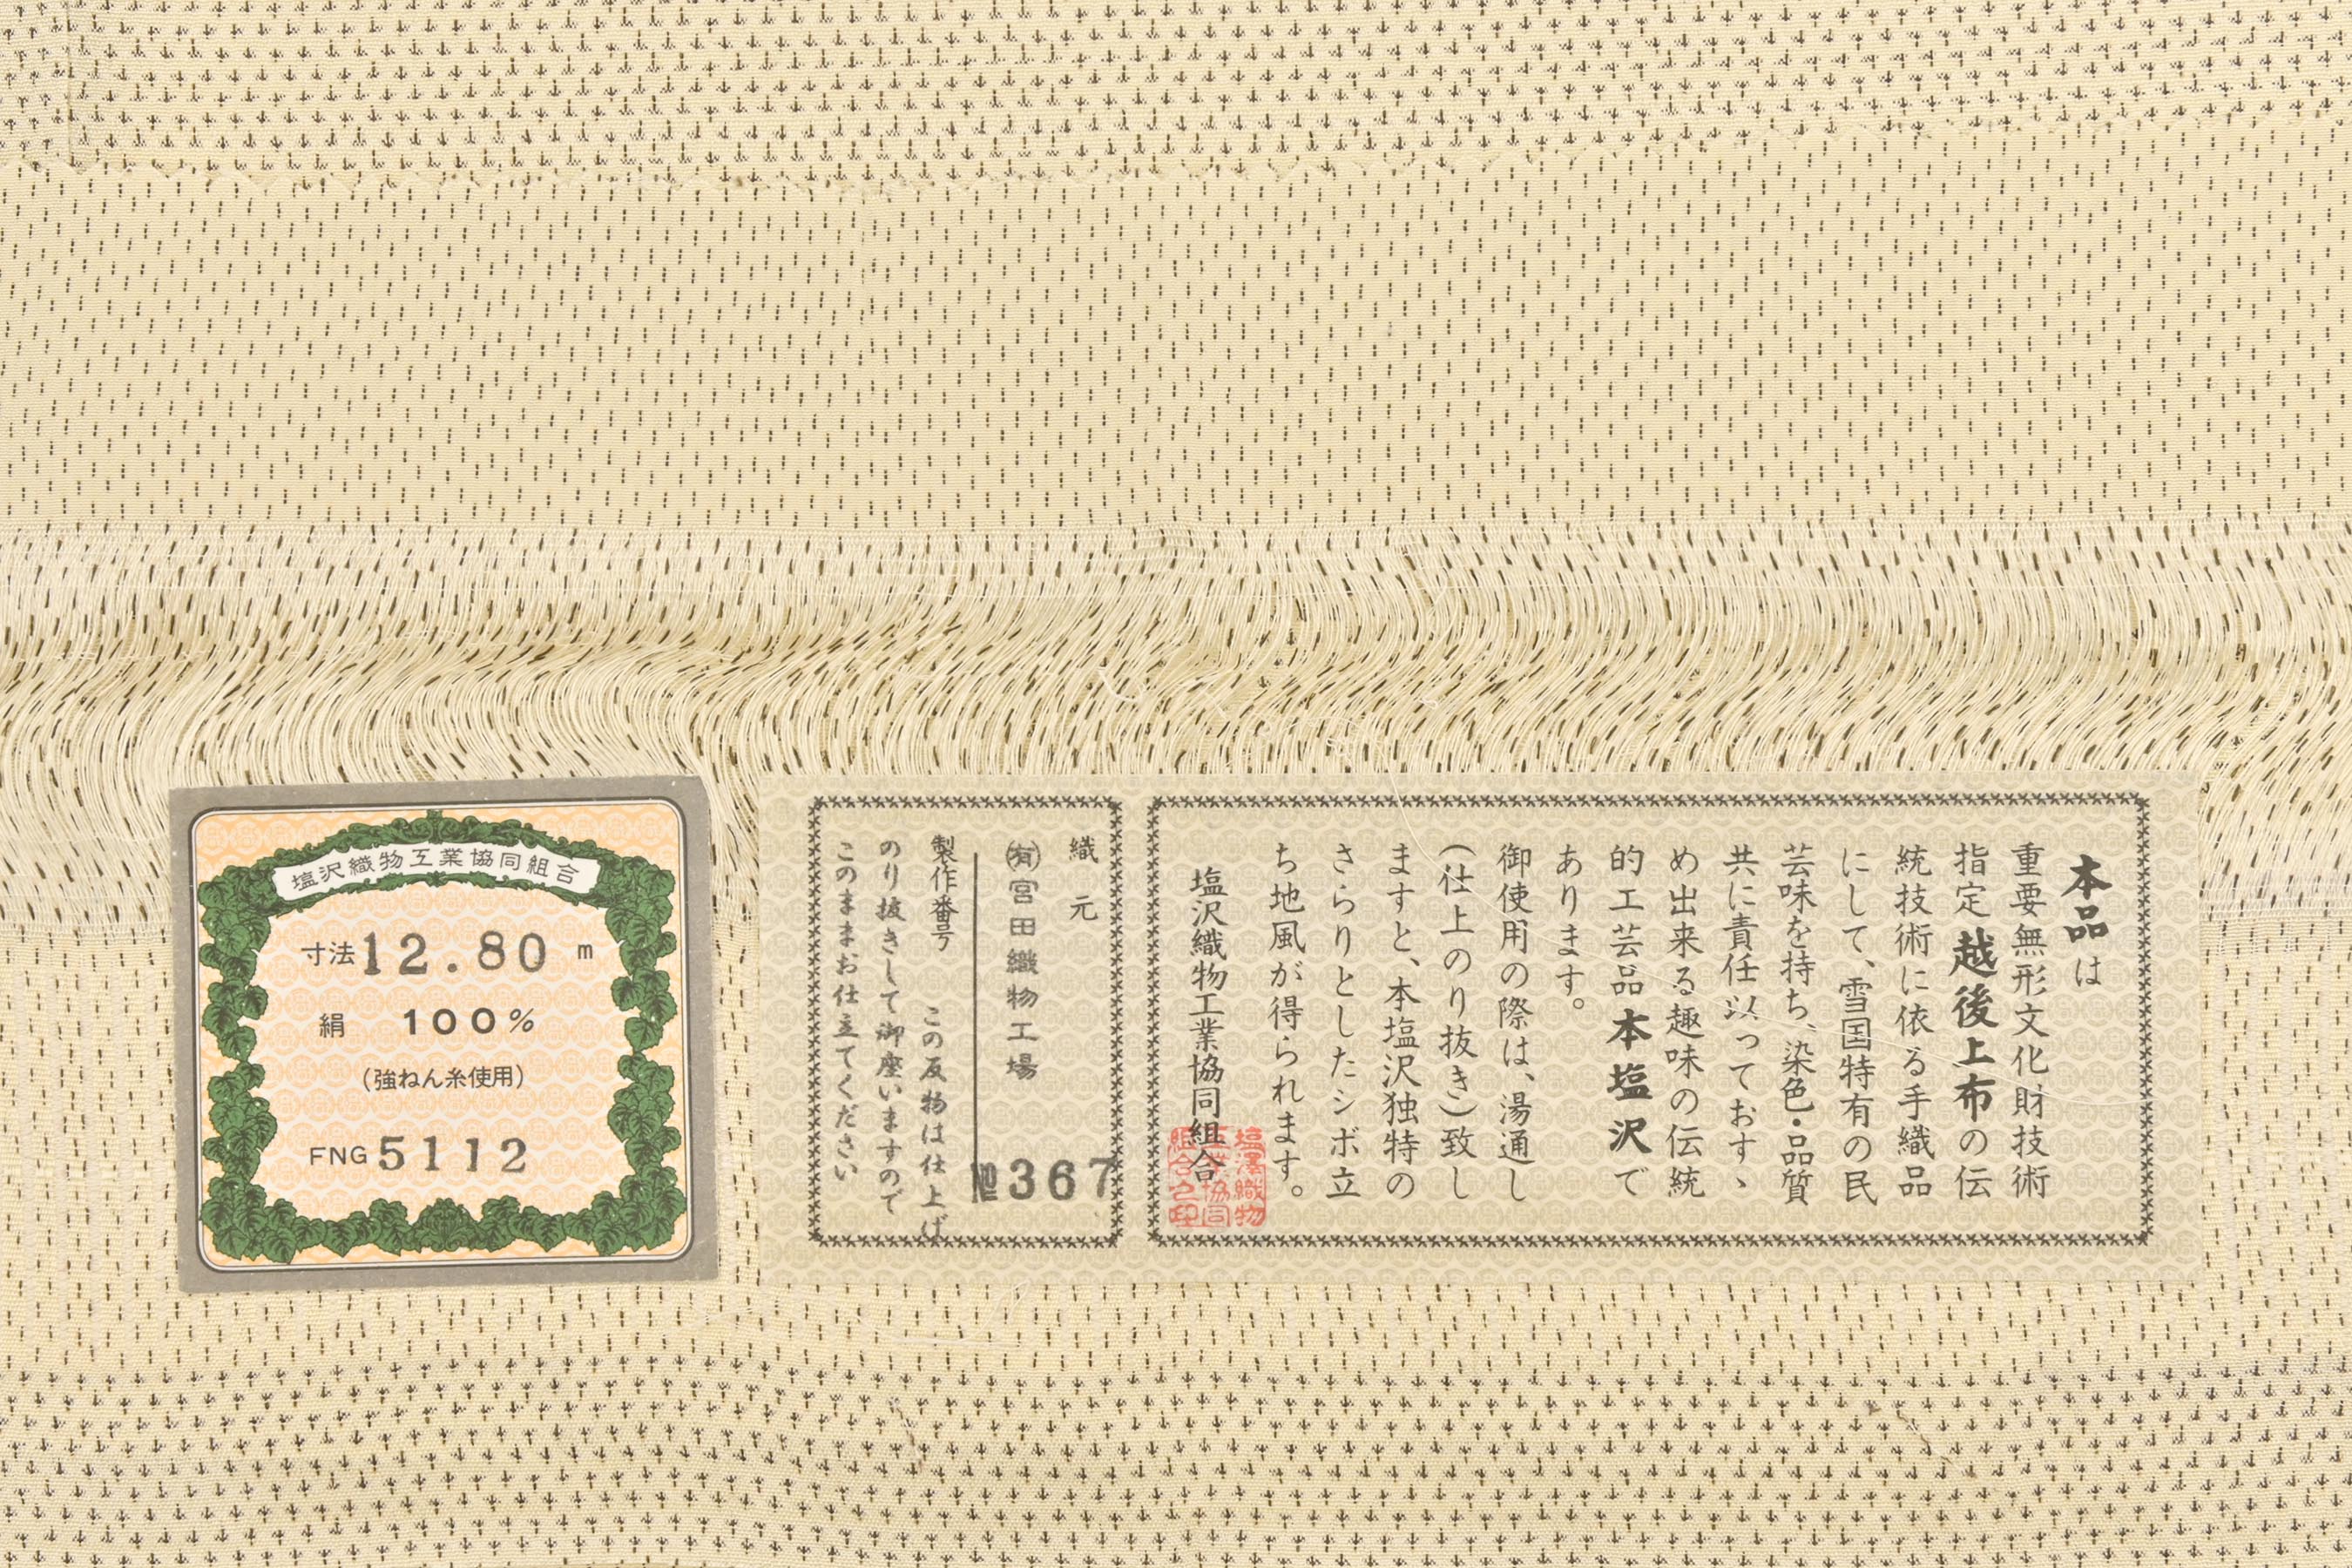 塩沢織物工業協同組合
寸法12.80 m
絹 100%
(強ねん糸使用)
FNG 5112
本品は
重要無形文化財技術
指定越後上布の伝
統技術に依る手織品
にして、雪国特有の民
芸味を持ち、染色・品質
共に責任以っておすゝ
め出来る趣味の伝統
的工芸品本塩沢で
あります。
御使用の際は、湯通し
(仕上のり抜き)致し
ますと、本塩沢独特の
さらりとしたシボ立
ち地風が得られます。
塩沢織物工業協同組合
塩澤織物
工業協同
組合之印
織元
㈲宮田織物工場
№367
製作番号
この反物は仕上ば
のり抜きして御座いますので
このままお仕立てください